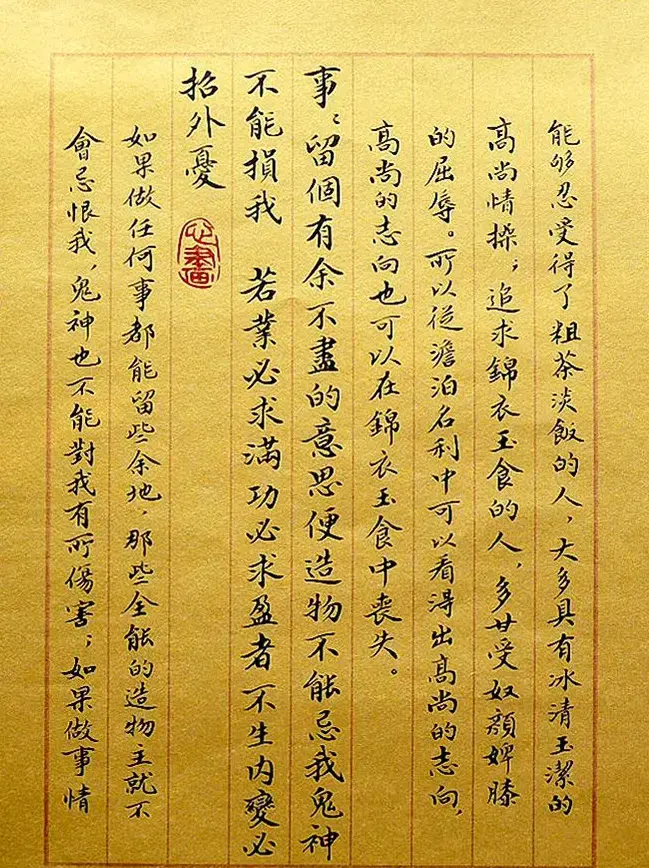 能够忍受得了粗茶淡飯的人，大多具有冰清玉潔的
高尚情操；追求錦衣玉食的人，多甘受奴顏婢膝
的屈辱。所以從澹泊名利中可以看得出高尚的志向，
高尚的志向也可以在錦衣玉食中喪失。
事事留個有余不盡的意思便造物不能忌我鬼神
不能損我 若業必求滿功必求盈者不生內變必
招外憂
心畫
如果做任何事都能留些余地，那些全能的造物主就不
會忌恨我，鬼神也不能對我有所傷害；如果做事情